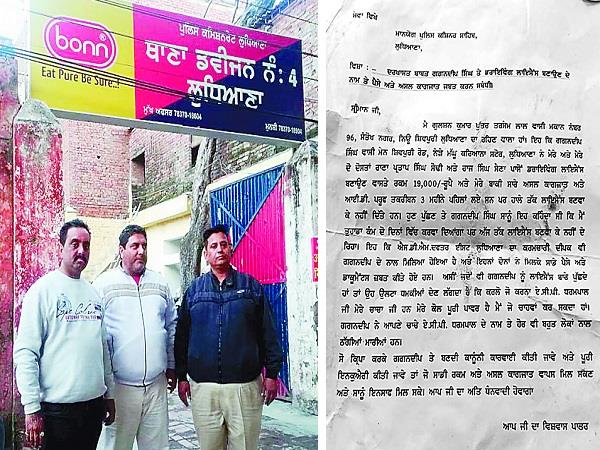 bonn
Eat Pure Be Sure...!
ਪੁਲਿਸ ਕਮਿਸ਼ਨਰੇਟ ਲੁਧਿਆਣਾ
ਥਾਣਾ ਡਵੀਜਨ ਨੰ: 4
ਲੁਧਿਆਣਾ
ਮੁੱਖ ਅਫਸਰ 78370-18604
ਮੁਨਸ਼ੀ 78370-18904
ਸੇਵਾ ਵਿਖੇ
ਮਾਨਯੋਗ ਪੁਲਿਸ ਕਮਿਸ਼ਨਰ ਸਾਹਿਬ,
ਲੁਧਿਆਣਾ,
ਵਿਸ਼ਾ : ਦਰਖਾਸਤ ਬਾਬਤ ਗਗਨਦੀਪ ਸਿੰਘ ਤੇ ਡਰਾਇਵਿੰਗ ਲਾਇਸੈਂਸ ਬਣਾਉਣ ਦੇ
ਨਾਮ ਤੇ ਪੈਸੇ ਅਤੇ ਅਸਲ ਕਾਗਜਾਤ ਜਬਤ ਕਰਨ ਸਬੰਧੀ।
ਸ਼੍ਰੀਮਾਨ ਜੀ,
ਮੈਂ ਗੁਲਸ਼ਨ ਕੁਮਾਰ ਪੁੱਤਰ ਤਰਸੇਮ ਲਾਲ ਵਾਸੀ ਮਕਾਨ ਨੰਬਰ
96, ਸੰਤੋਖ ਨਗਰ, ਨਿਊ ਸ਼ਿਵਪੁਰੀ ਲੁਧਿਆਣਾ ਦਾ ਰਹਿਣ ਵਾਲਾ ਹਾਂ। ਇਹ ਕਿ ਗਗਨਦੀਪ
ਸਿੰਘ ਵਾਸੀ ਮੇਨ ਸ਼ਿਵਪੁਰੀ ਰੋਡ, ਨੇੜੇ ਮੱਘੂ ਕਰਿਆਨਾ ਸਟੋਰ, ਲੁਧਿਆਣਾ ਨੇ ਮੇਰੇ ਅਤੇ ਮੇਰੇ
ਦੋ ਦੋਸਤਾਂ ਰਾਣਾ ਪ੍ਰਤਾਪ ਸਿੰਘ ਸੋਢੀ ਅਤੇ ਰਾਜ ਸਿੰਘ ਸੈਣਾ ਪਾਸੋਂ ਡਰਾਇਵਿੰਗ ਲਾਇਸੈਂਸ
ਬਣਾਉਣ ਵਾਸਤੇ ਰਕਮ 19,000/-ਰੂਪੈ ਅਤੇ ਮੇਰੇ ਬਾਕੀ ਸਾਰੇ ਅਸਲ ਕਾਗਜਾਤ ਅਤੇ
ਆਈ.ਡੀ. ਪਰੂਫ ਤਕਰੀਬਨ 3 ਮਹੀਨੇ ਪਹਿਲਾਂ ਲਏ ਸਨ ਪਰ ਹਾਲੇ ਤੱਕ ਲਾਇਸੈਂਸ ਬਣਵਾ ਕੇ
ਨਹੀਂ ਦਿੱਤੇ ਹਨ। ਹੁਣ ਪੁੱਛਣ ਤੇ ਗਗਨਦੀਪ ਸਿੰਘ ਸਾਨੂੰ ਇਹ ਕਹਿੰਦਾ ਸੀ ਕਿ ਮੈਂ
ਤੁਹਾਡਾ ਕੰਮ ਦੋ ਦਿਨਾਂ ਵਿੱਚ ਕਰਵਾ ਦਿਆਂਗਾ ਪਰ ਅੱਜ ਤੱਕ ਲਾਇਸੈਂਸ ਬਣਵਾ ਕੇ ਨਹੀਂ ਦੇ
ਰਿਹਾ। ਇਹ ਕਿ ਐਸ.ਡੀ.ਐਮ.ਦਫਤਰ ਈਸਟ ਲੁਧਿਆਣਾ ਦਾ ਕਰਮਚਾਰੀ ਦੀਪਕ ਵੀ
ਗਗਨਦੀਪ ਦੇ ਨਾਲ ਮਿਲਿਆ ਹੋਇਆ ਹੈ ਅਤੇ ਇਹਨਾਂ ਦੋਨਾਂ ਨੇ ਮਿਲਕੇ ਸਾਡੇ ਪੈਸੇ ਅਤੇ
ਡਾਕੂਮੈਂਟਸ ਜ਼ਬਤ ਕੀਤੇ ਹੋਏ ਹਨ। ਅਸੀਂ ਜਦੋਂ ਵੀ ਗਗਨਦੀਪ ਨੂੰ ਲਾਇਸੈਂਸ ਬਾਰੇ ਪੁੱਛਦੇ
ਹਾਂ ਤਾਂ ਉਹ ਉਲਟਾ ਧਮਕੀਆਂ ਦੇਣ ਲੱਗਦਾ ਹੈ ਕਿ ਕਰਲੋ ਜੋ ਕਰਨਾ ਏ.ਸੀ.ਪੀ. ਧਰਮਪਾਲ
ਜੀ ਮੇਰੇ ਚਾਚਾ ਜੀ ਹਨ ਮੇਰੇ ਕੋਲ ਪੂਰੀ ਪਾਵਰ ਹੈ ਮੈਂ ਜੋ ਚਾਹਵਾਂ ਕਰ ਸਕਦਾ ਹਾਂ।
ਗਗਨਦੀਪ ਨੇ ਆਪਣੇ ਚਾਚੇ ਏ.ਸੀ.ਪੀ. ਧਰਮਪਾਲ ਦੇ ਨਾਮ ਤੇ ਹੋਰ ਵੀ ਬਹੁਤ ਲੋਕਾਂ ਨਾਲ
ਠੱਗੀਆਂ ਮਾਰੀਆਂ ਹਨ।
ਸੋ ਕ੍ਰਿਪਾ ਕਰਕੇ ਗਗਨਦੀਪ ਤੇ ਬਣਦੀ ਕਾਨੂੰਨੀ ਕਾਰਵਾਈ ਕੀਤੀ ਜਾਵੇ ਅਤੇ ਪੂਰੀ
ਇਨਕੁਐਰੀ ਕੀਤੀ ਜਾਵੇ ਤਾਂ ਜੋ ਸਾਡੀ ਰਕਮ ਅਤੇ ਅਸਲ ਕਾਗਜਾਤ ਵਾਪਸ ਮਿਲ ਸਕਣ
ਅਤੇ ਸਾਨੂੰ ਇਨਸਾਫ ਮਿਲ ਸਕੇ। ਆਪ ਜੀ ਦਾ ਅਤਿ ਧੰਨਵਾਦੀ ਹੋਵਾਗਾ
ਆਪ ਜੀ ਦਾ ਵਿਸ਼ਵਾਸ ਪਾਤਰ